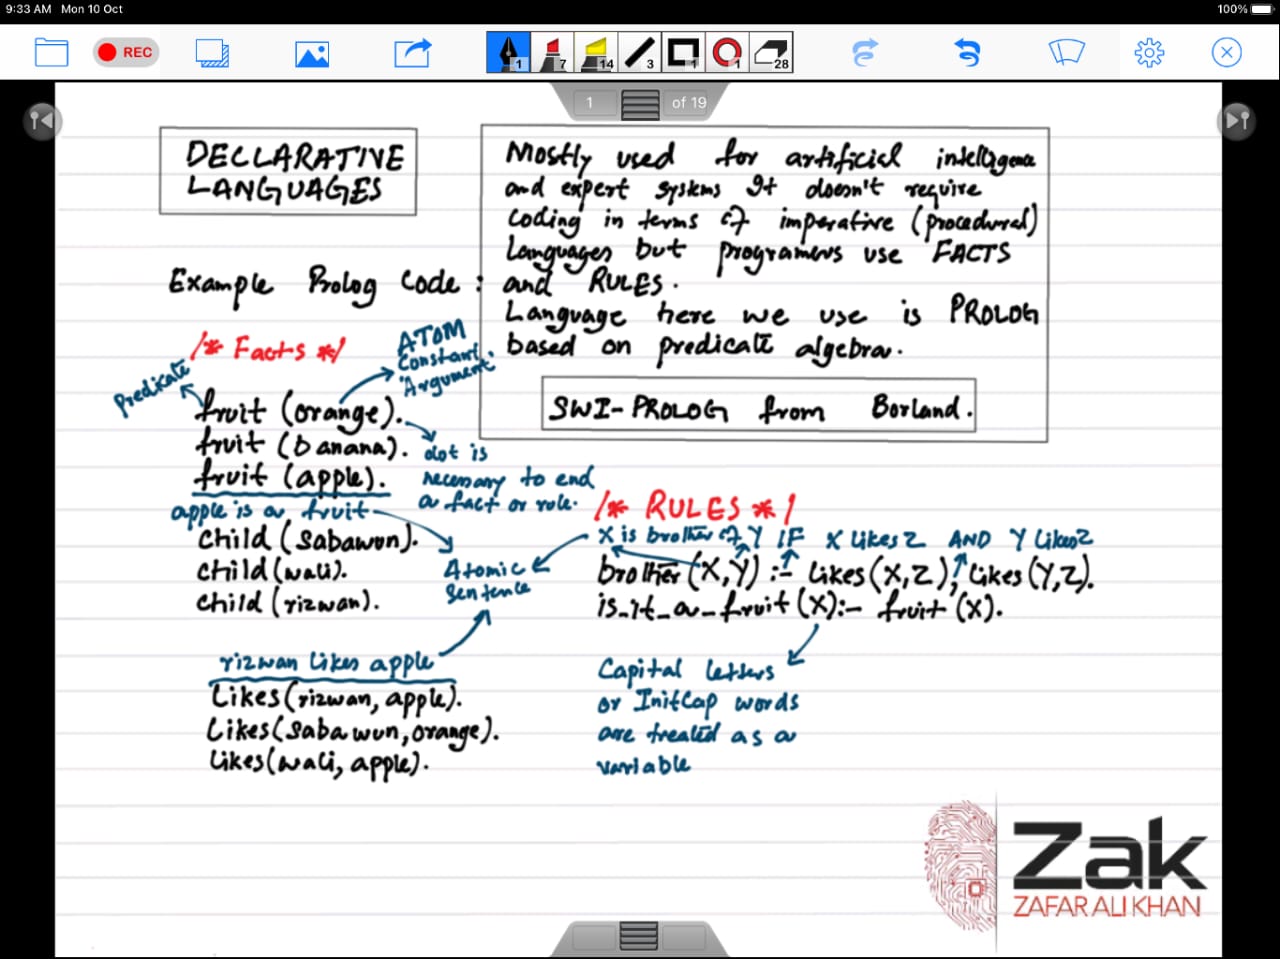 9:33 AM Mon 10 Oct
100%
REC
1
7
14
3
1
1
28
1 of 19
DECLARATIVE
LANGUAGES
Mostly used for artificial intelligence
and expert systems It doesn't require
coding in terms of imperative (procedural)
Languages but programers use FACTS
and RULES.
Language here we use is PROLOG
based on predicate algebra.
SWI-PROLOG from Borland.
Example Prolog Code :
/* Facts */
ATOM
Constant
Argument
Predicate
fruit (orange).
fruit (banana).
fruit (apple).
dot is
necessary to end
a fact or rule.
apple is a fruit
child (Sabawun).
child (wali).
child (rizwan).
Atomic
Sentence
rizwan likes apple
Likes (rizwan, apple).
Likes (Sabawun, orange).
Likes (wali, apple).
/* RULES */
X is brother of Y IF X likes Z AND Y likes Z
brother (X,Y) :- Likes (X,Z), Likes (Y,Z).
is_it_a_fruit (X):- fruit (X).
Capital letters
or InitCap words
are treated as a
variable
Zak
ZAFAR ALI KHAN